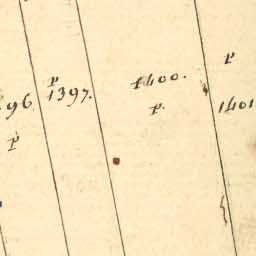 p
1397.
1400.
p.
p
1401
96
p